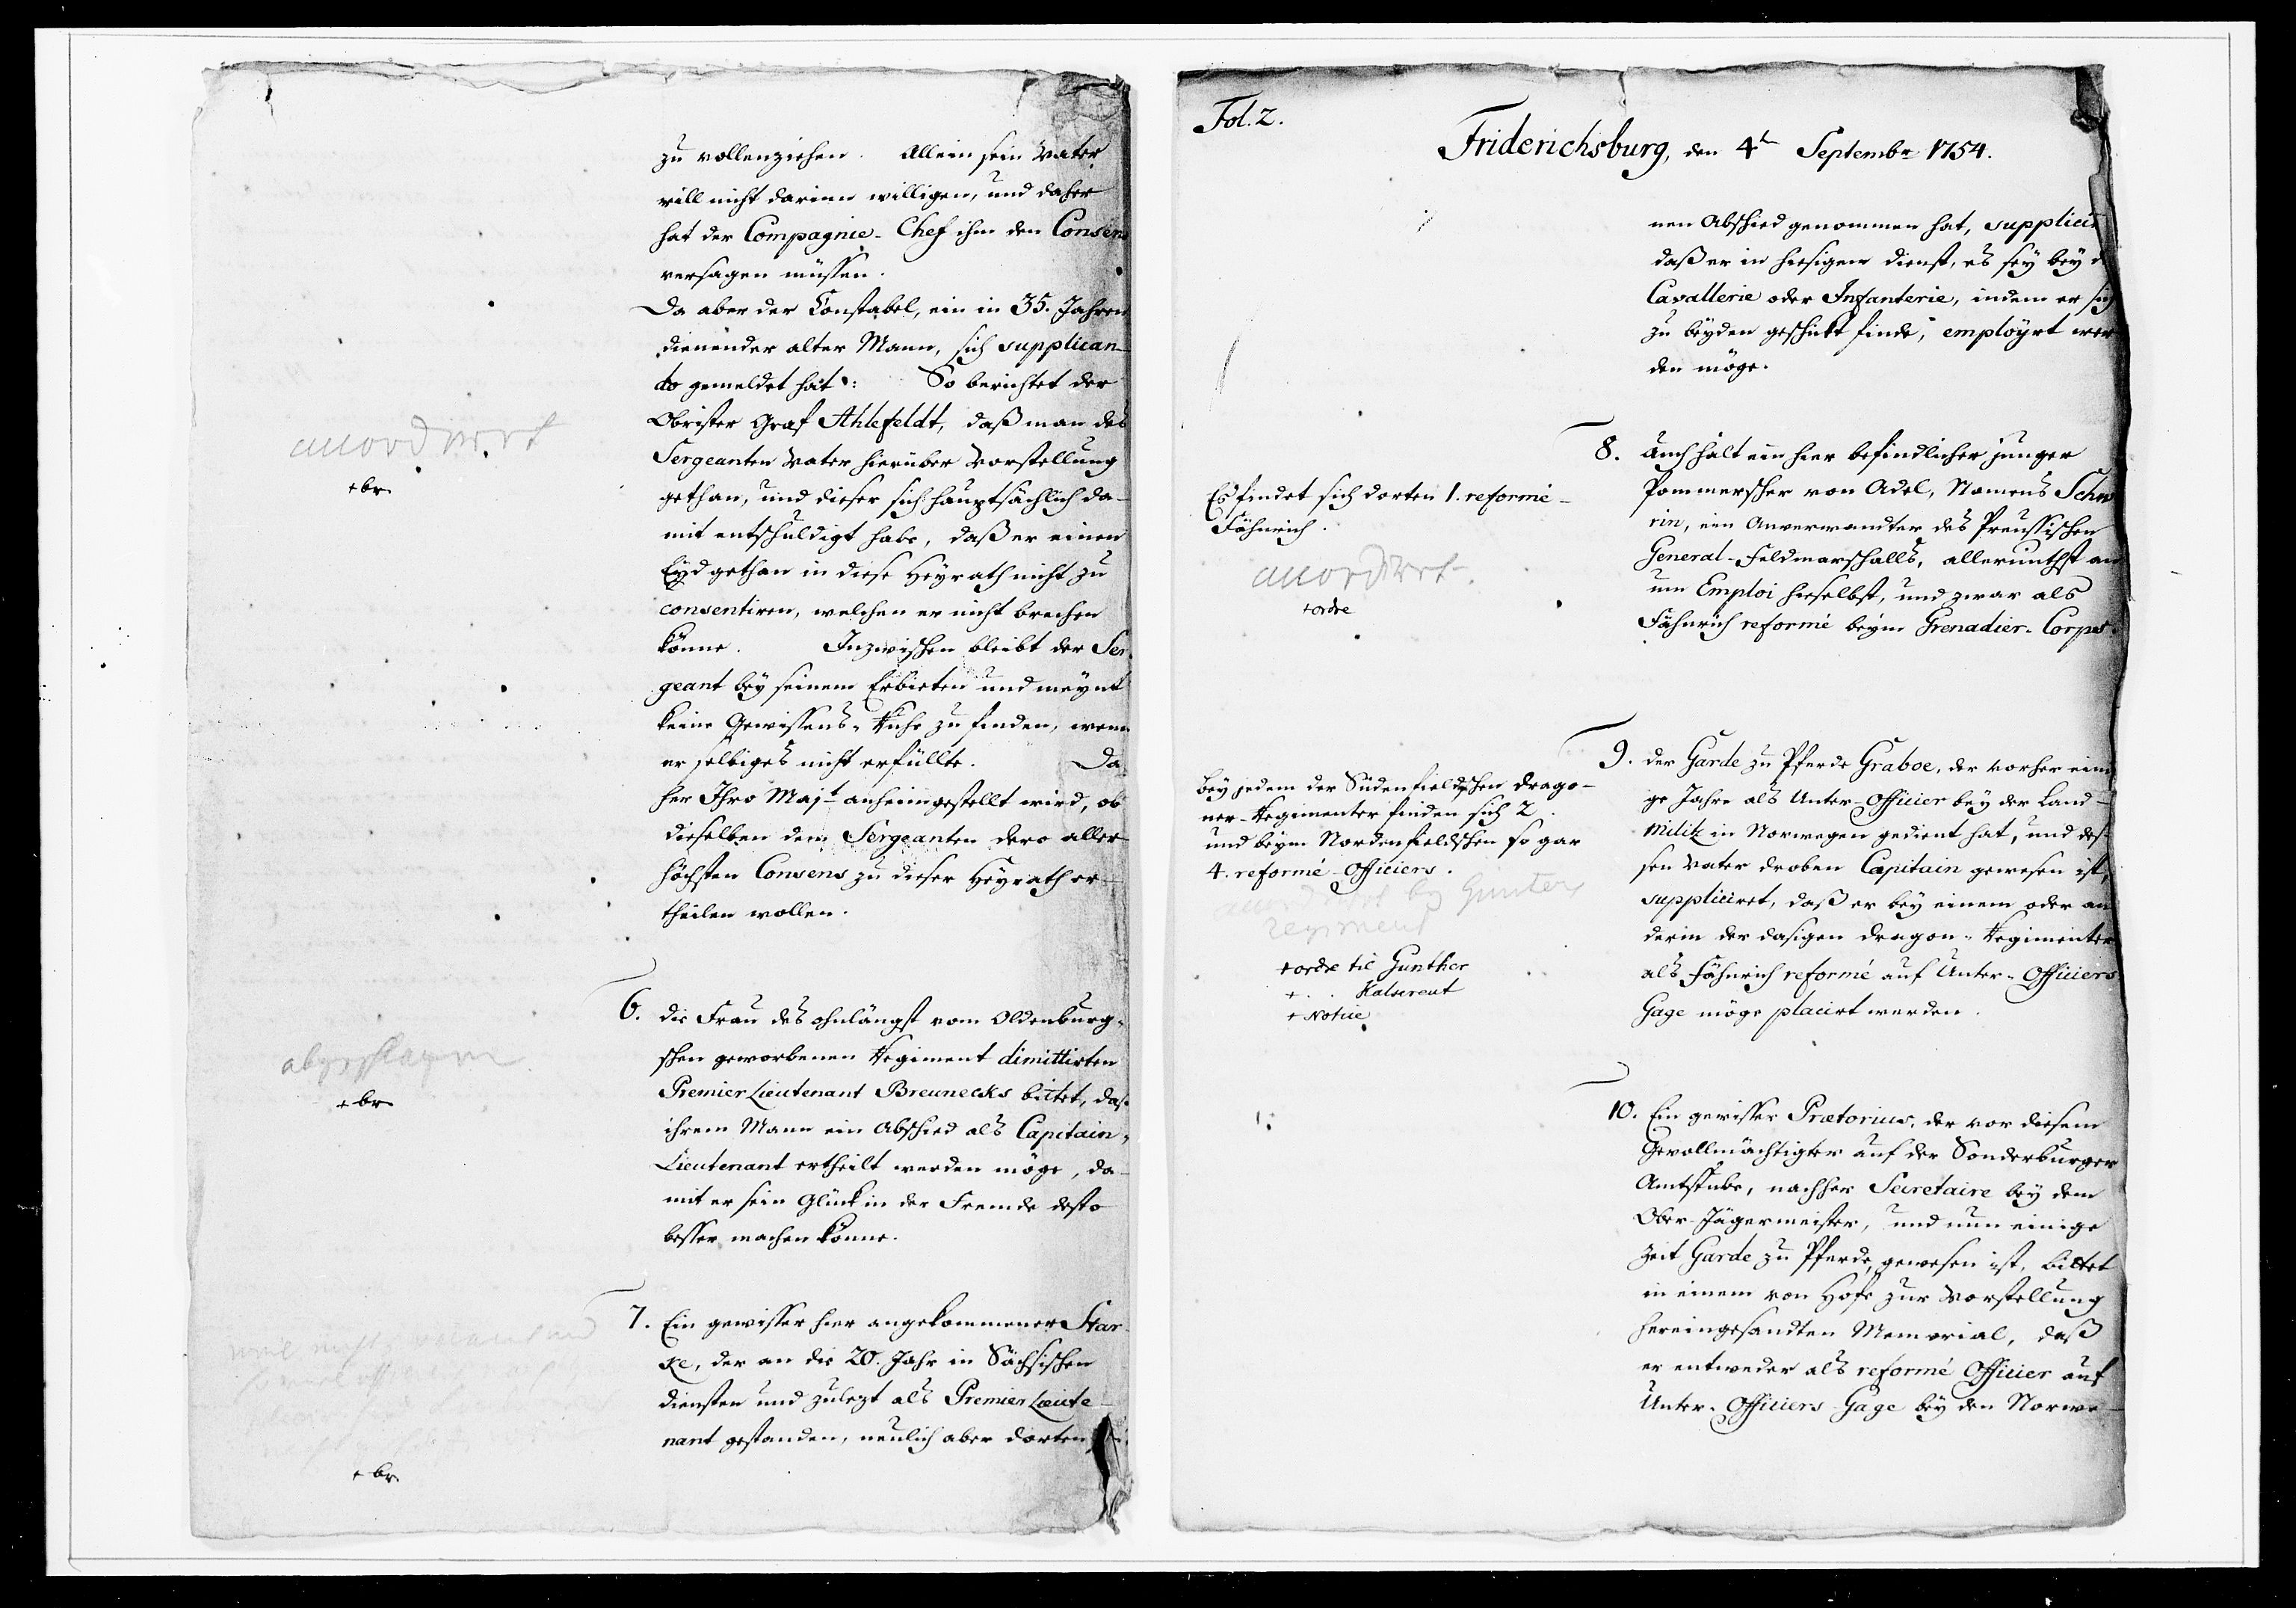 zu vollenziehen. Allein sein Vater
will nicht darinn willigen, und daher
hat der Compagnie-Chef ihm den Consens
versagen müssen.
Da aber der Constabel, ein in 35. Jahren
dienender alter Mann, sich supplican-
do gemeldet hat: So berichtet der
Obrister Graf Ahlefeldt, daß man des
Sergeanten Vater hierüber Vorstellung
gethan, und dieser sich hauptsächlich da-
mit entschuldigt habe, daß er einen
Eyd gethan in diese Heyrath nicht zu
consentiren, welchen er nicht brechen
könne. Inzwischen bleibt der Ser-
geant bey seinem Erbieten und meynt
keine Gewissens-Ruhe zu finden, wenn
er selbiges nicht erfüllte. Da
her Ihro Majt anheimgestellt wird, ob
dieselben dem Sergeanten dero aller
höchsten Consens zu dieser Heyrath er-
theilen wollen.
accordirt
+br.
6. die Frau des ohnlängst vom Oldenburg-
schen geworbenen Regiment dimittirten
Premier Lieutenant Breunecks bittet, daß
ihrem Mann ein Abschied als Capitain-
Lieutenant ertheilt werden möge, da-
mit er sein Glück in der Fremde desto
besser machen könne.
abgeschlagen
+br.
7. Ein gewisser hier angekommener Star-
ke, der an die 20. Jahr in Sächsischen
diensten und zulezt als Premier Lieute-
nant gestanden, neulich aber dorten
weil nicht
+br.
Fol. 2.
Friderichsburg, den 4t Septembr 1754.
nen Abschied genommen hat, supplicirt
daß er in hiesigem dienst, es sey bey d
Cavallerie oder Infanterie, indem er sich
zu beyden geschickt finde, employrt wer
den möge.
8. Auch hält ein hier befindlicher junger
Pommerscher von Adel, Namens Schwe
rin, ein Anverwandter des Preussischen
General-Feldmarschalls, allerunthst an
um Emploi hieselbst, und zwar als
Fähnrich reformé beym Grenadier-Corps.
Es findet sich dorten 1. reformé-
Fähnrich.
accordirt
+ordre
9. der Garde zu Pferde Graboe, der vorher eini
ge Jahre als Unter-Officier bey der Land-
Militz in Norwegen gedient hat, und des-
sen Vater droben Capitain gewesen ist,
suppliciret, daß er bey einem oder an
derm der dasigen dragon-Regimenter
als Fähnrich reformé auf Unter-Officiers
Gage möge placirt werden.
bey jedem der Südenfieldschen drago-
ner-Regimenter finden sich 2.
und beym Nordenfieldschen so gar
4. reformé-Officiers.
accordirt by Gunters
regiment
+ordre til Gunther
+ . . Kalverent
+ Notice
10. Ein gewisser Prætorius, der vor diesem
Gevollmächtigter auf der Sonderburger
Amtstube, nachher Secretaire bey dem
Ober-Jägermeister, und nun einige
Zeit Garde zu Pferde, gewesen ist, bittet
in einem von Hofe zur Vorstellung
hereingesandten Memorial, daß
er entweder als reformé Officier auf
Unter-Officiers-Gage bey den Norwe-